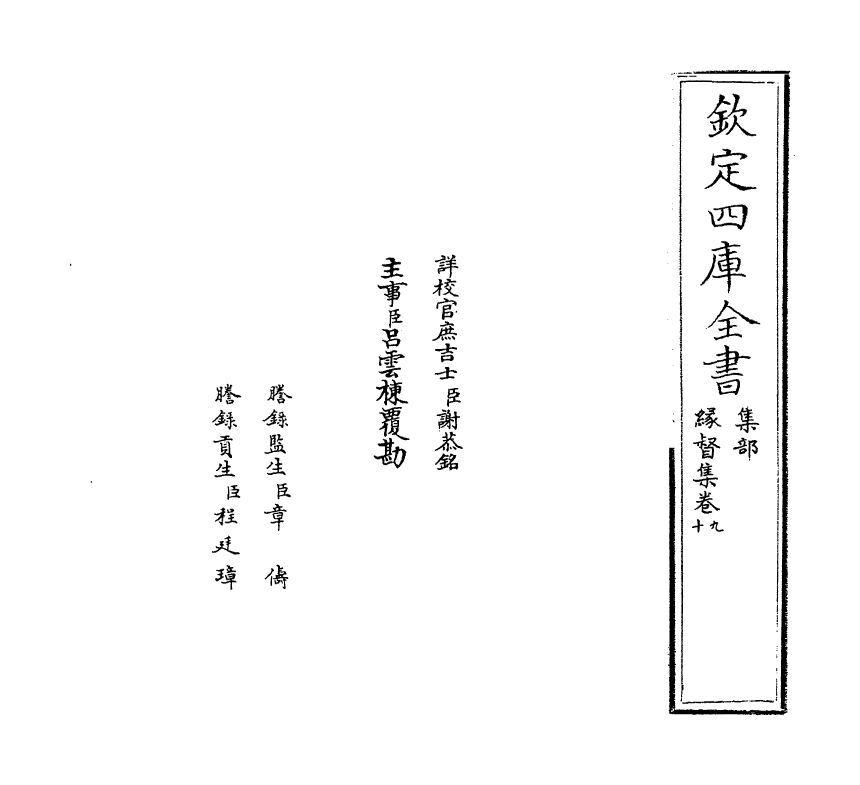 欽定四庫全書
集部
緣督集卷九
十
詳校官庶吉士臣謝恭銘
主事臣呂雲棟覆勘
謄錄監生臣章儔
謄錄貢生臣程廷璋